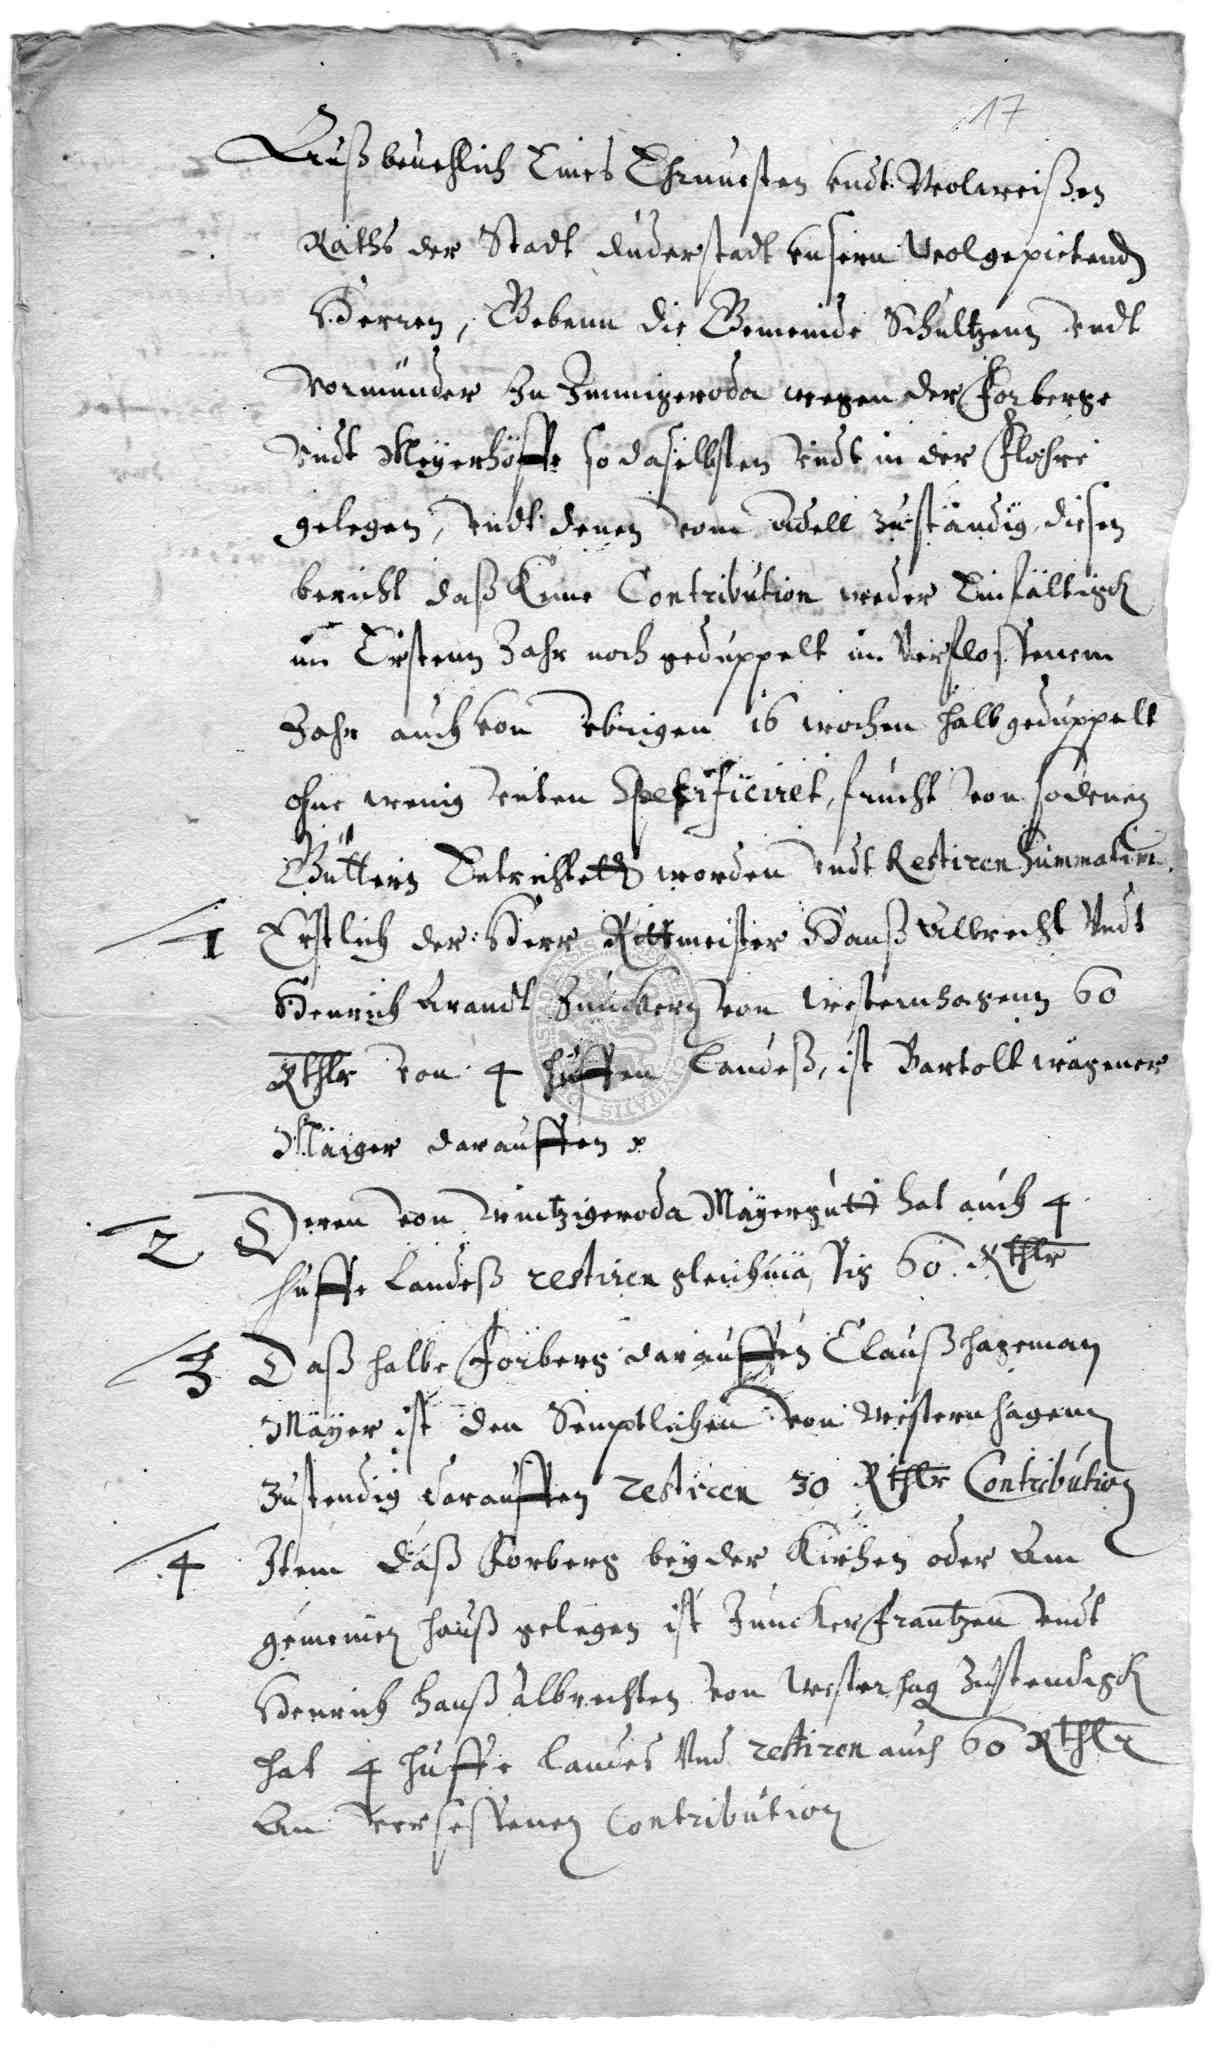 17
Auß beuehlich Eines Ehrnuesten vndt Wolweißen
Raths der Stadt Duderstadt vnsern Wolgepietendn
Herren, Gebenn die Gemeinde Schultzenn vndt
Vormünder Zu Immigeroda wegen der Forberge
vndt Meyerhöffe so daselbsten vndt in der Fluhre
gelegen, vndt denen vom Adell zuständig, diesen
bericht daß Keine Contribution weder Einfältigk
im Ersten Jahr noch geduppelt im Verflossenem
Jahr auch von vbrigen 16 wochen halb geduppelt
ohne wenig vnten Spetzificiret, frucht von sodenen
Güttern Entrichtett worden vndt Restiren Summatim
1 Erstlich der Herr Rittmeister Hanß Albrecht Vndt
Henrich Arandt Junckern von Westernhagenn 60
Rthlr von 4 huffen Landeß, ist Bartolt Wagener
Maiger darauffen
2 Deren von Wintzigeroda Mäyergutt hat auch 4
huffe Landeß restiren gleichmässig 60 Rthlr
3 Daß halbe Forberg darauffen Clauß hageman
Mäyer ist den Semptlichen von Westernhagen
Zustendig darauffen restiren 30 Rthlr Contribution
4 Item daß Forberg bey der Kirchen oder Am
gemeinen hauß gelegen ist Juncker Frantzen vndt
Henrich hanß albrechten von Westerhag Zustendigk
hat 4 huffe Landes Vnd restiren auch 60 Rthlr
An versessenen Contribution